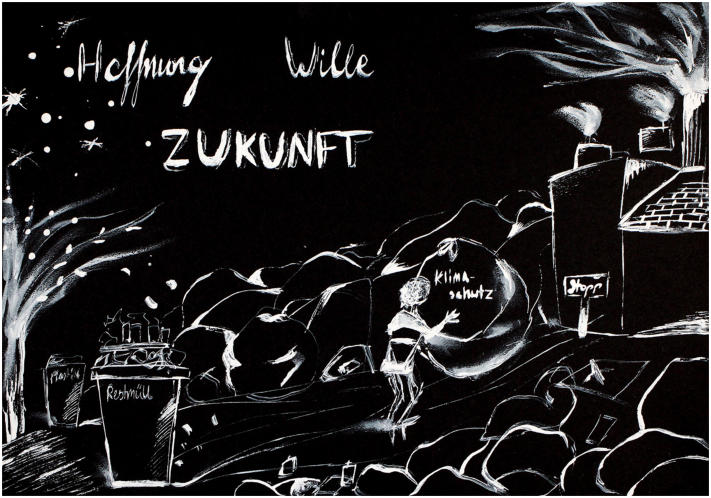 Hoffnung Wille
ZUKUNFT
Klima-
schutz
Stopp
Plastik
Restmüll